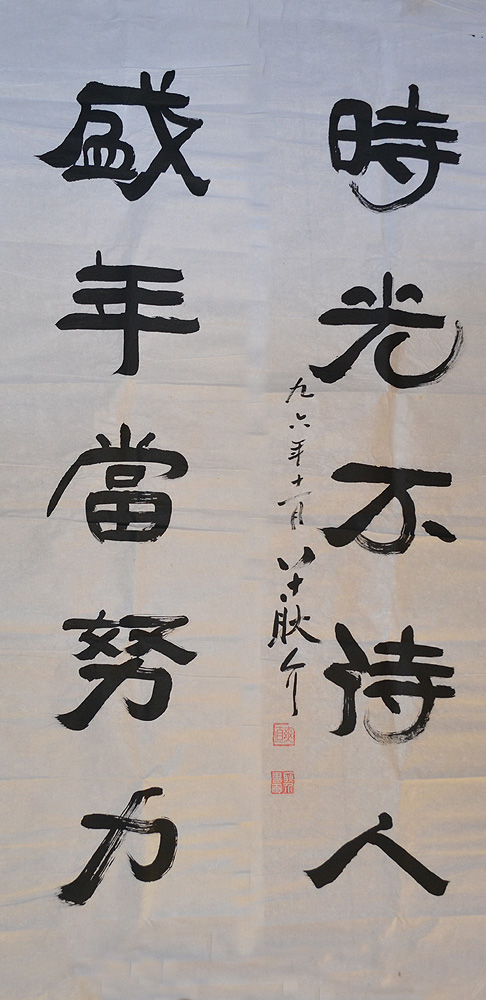 時光不待人
九六年十一月 八十耿介
盛年當努力